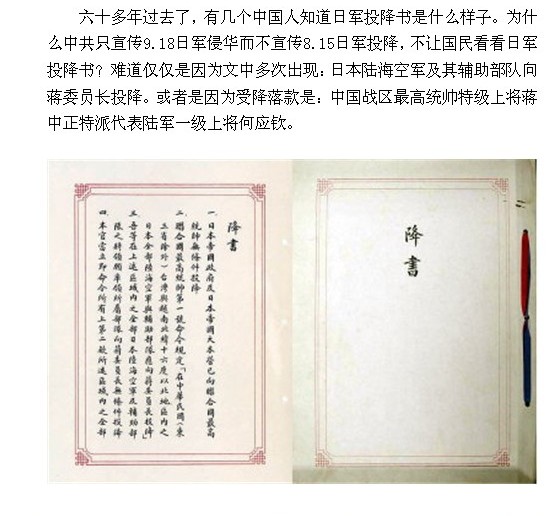 六十多年过去了，有几个中国人知道日军投降书是什么样子。为什
么中共只宣传9.18日军侵华而不宣传8.15日军投降，不让国民看看日军
投降书？难道仅仅是因为文中多次出现：日本陆海空军及其辅助部队向
蒋委员长投降。或者是因为受降落款是：中国战区最高统帅特级上将蒋
中正特派代表陆军一级上将何应钦。
降書
降書
一、日本帝國政府及日本帝國大本營已向聯合國最高
統帥無條件投降
二、聯合國最高統帥第一號命令規定「在中華民國（東
三省除外）台灣與越南北緯十六度以北地區內之
日本全部陸海空軍與輔助部隊應向蔣委員長投降」
三、吾等在上述區域內之全部日本陸海空軍及輔助部
隊之將領願率領所屬部隊向蔣委員長無條件投降
四、本官當立即命令所有上第二款所述區域內之全部